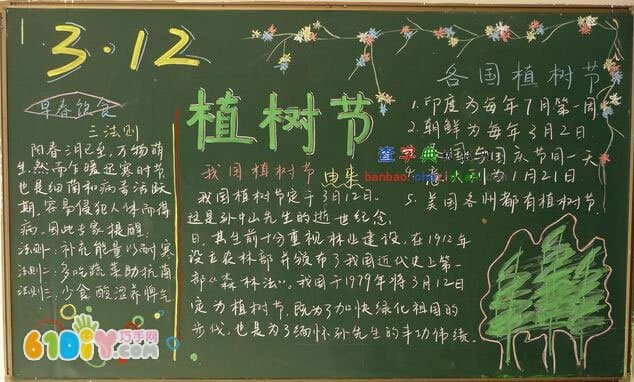 3·12
早春饮食
三法则
阳春三月已至,万物萌
生,然而乍暖还寒时节
也是细菌和病毒活跃
期,容易侵犯人体而得
病,因此专家提醒:
法则一:补充能量以耐寒
法则二:多吃蔬菜助抗菌
法则三:少食酸湿养脾气
植树节
我国植树节 由来
我国植树节定于3月12日,
这是孙中山先生的逝世纪念
日,其生前十分重视林业建设,在1912年
设立农林部并颁布了我国近代史上第一
部《森林法》。我国于1979年将3月12日
定为植树节,既为了加快绿化祖国的
步伐,也是为了缅怀孙先生的丰功伟绩。
各国植树节
1.印度为每年7月第一周
2.朝鲜为每年3月2日
国与国庆节同一天
4. 意大利为11月21日
5.美国各州都有植树节
查字典
banbao.chazidian.com
61DIY巧手网
.com